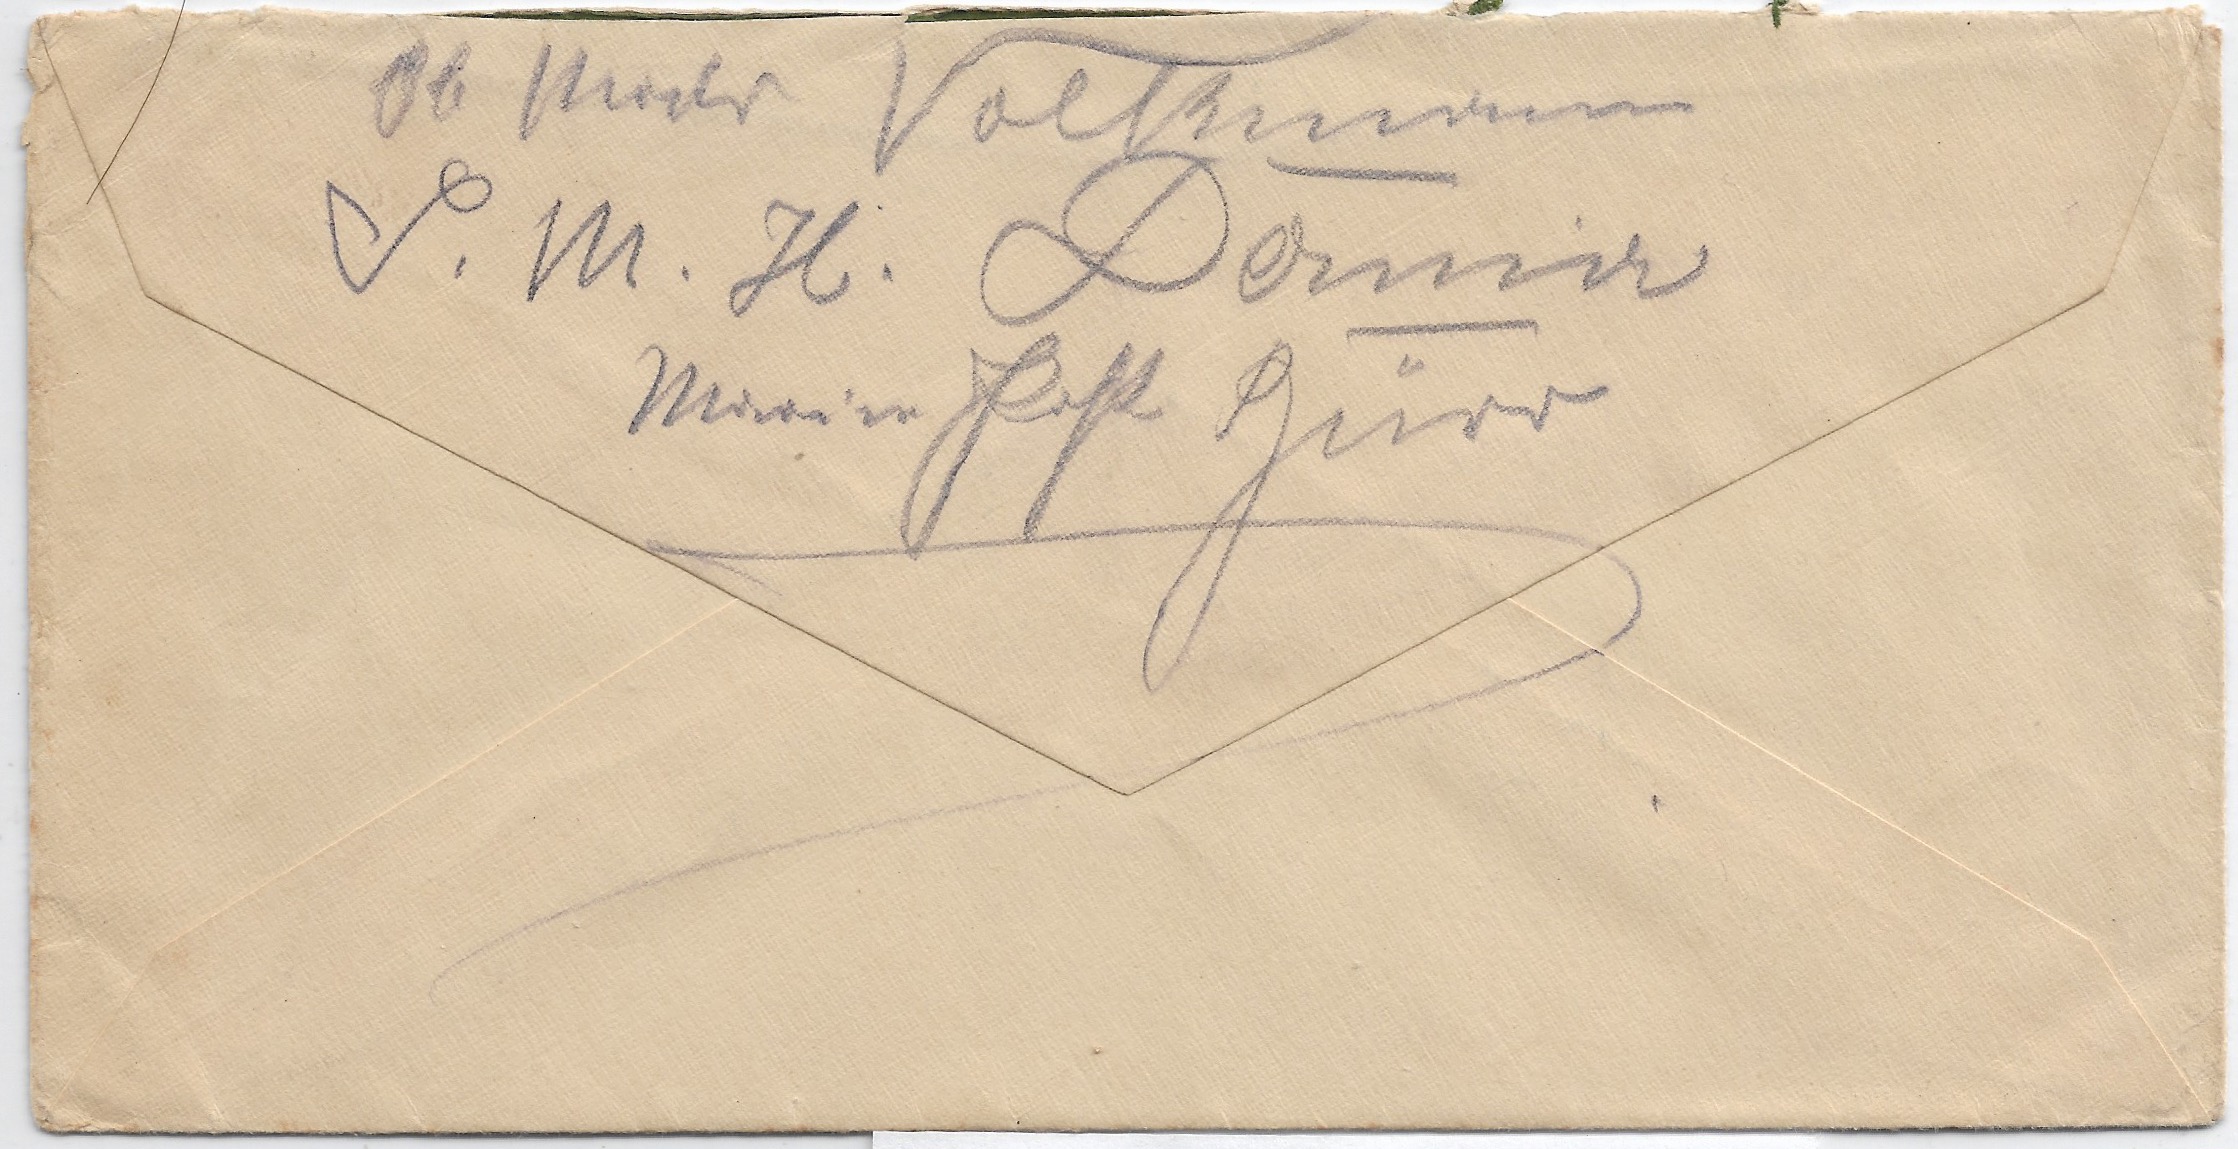 Ob Matr Volkmann
S. M. H. Donau
Marine Post Büro